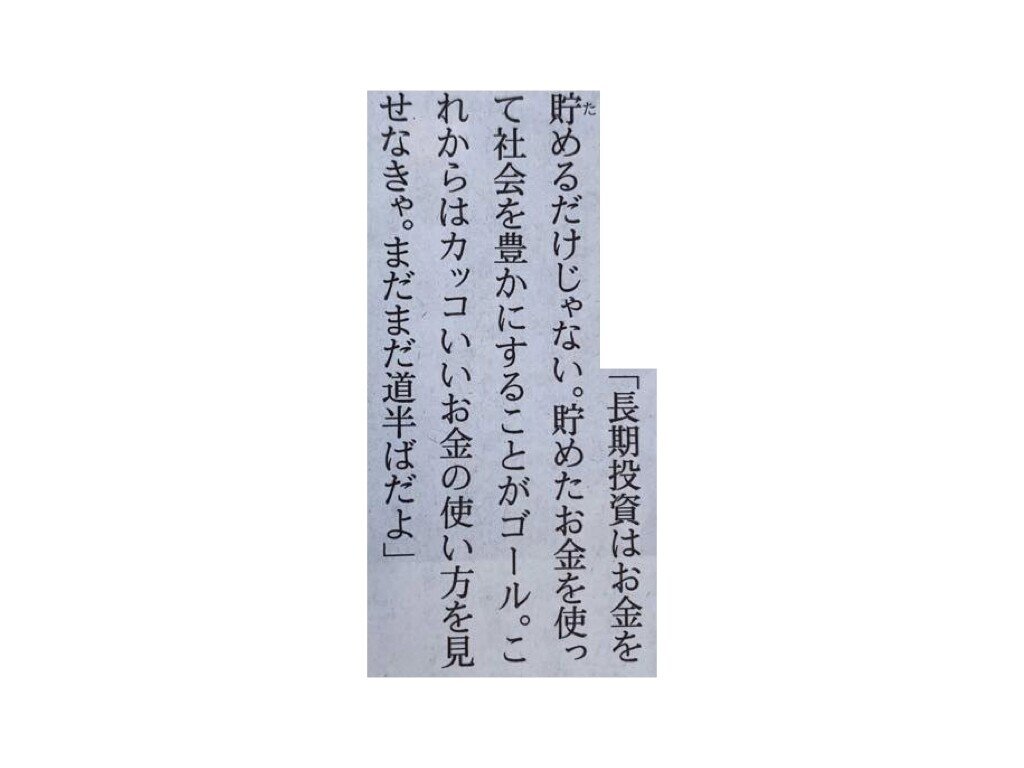 「長期投資はお金を
貯めるだけじゃない。貯めたお金を使っ
て社会を豊かにすることがゴール。こ
れからはカッコいいお金の使い方を見
せなきゃ。まだまだ道半ばだよ」